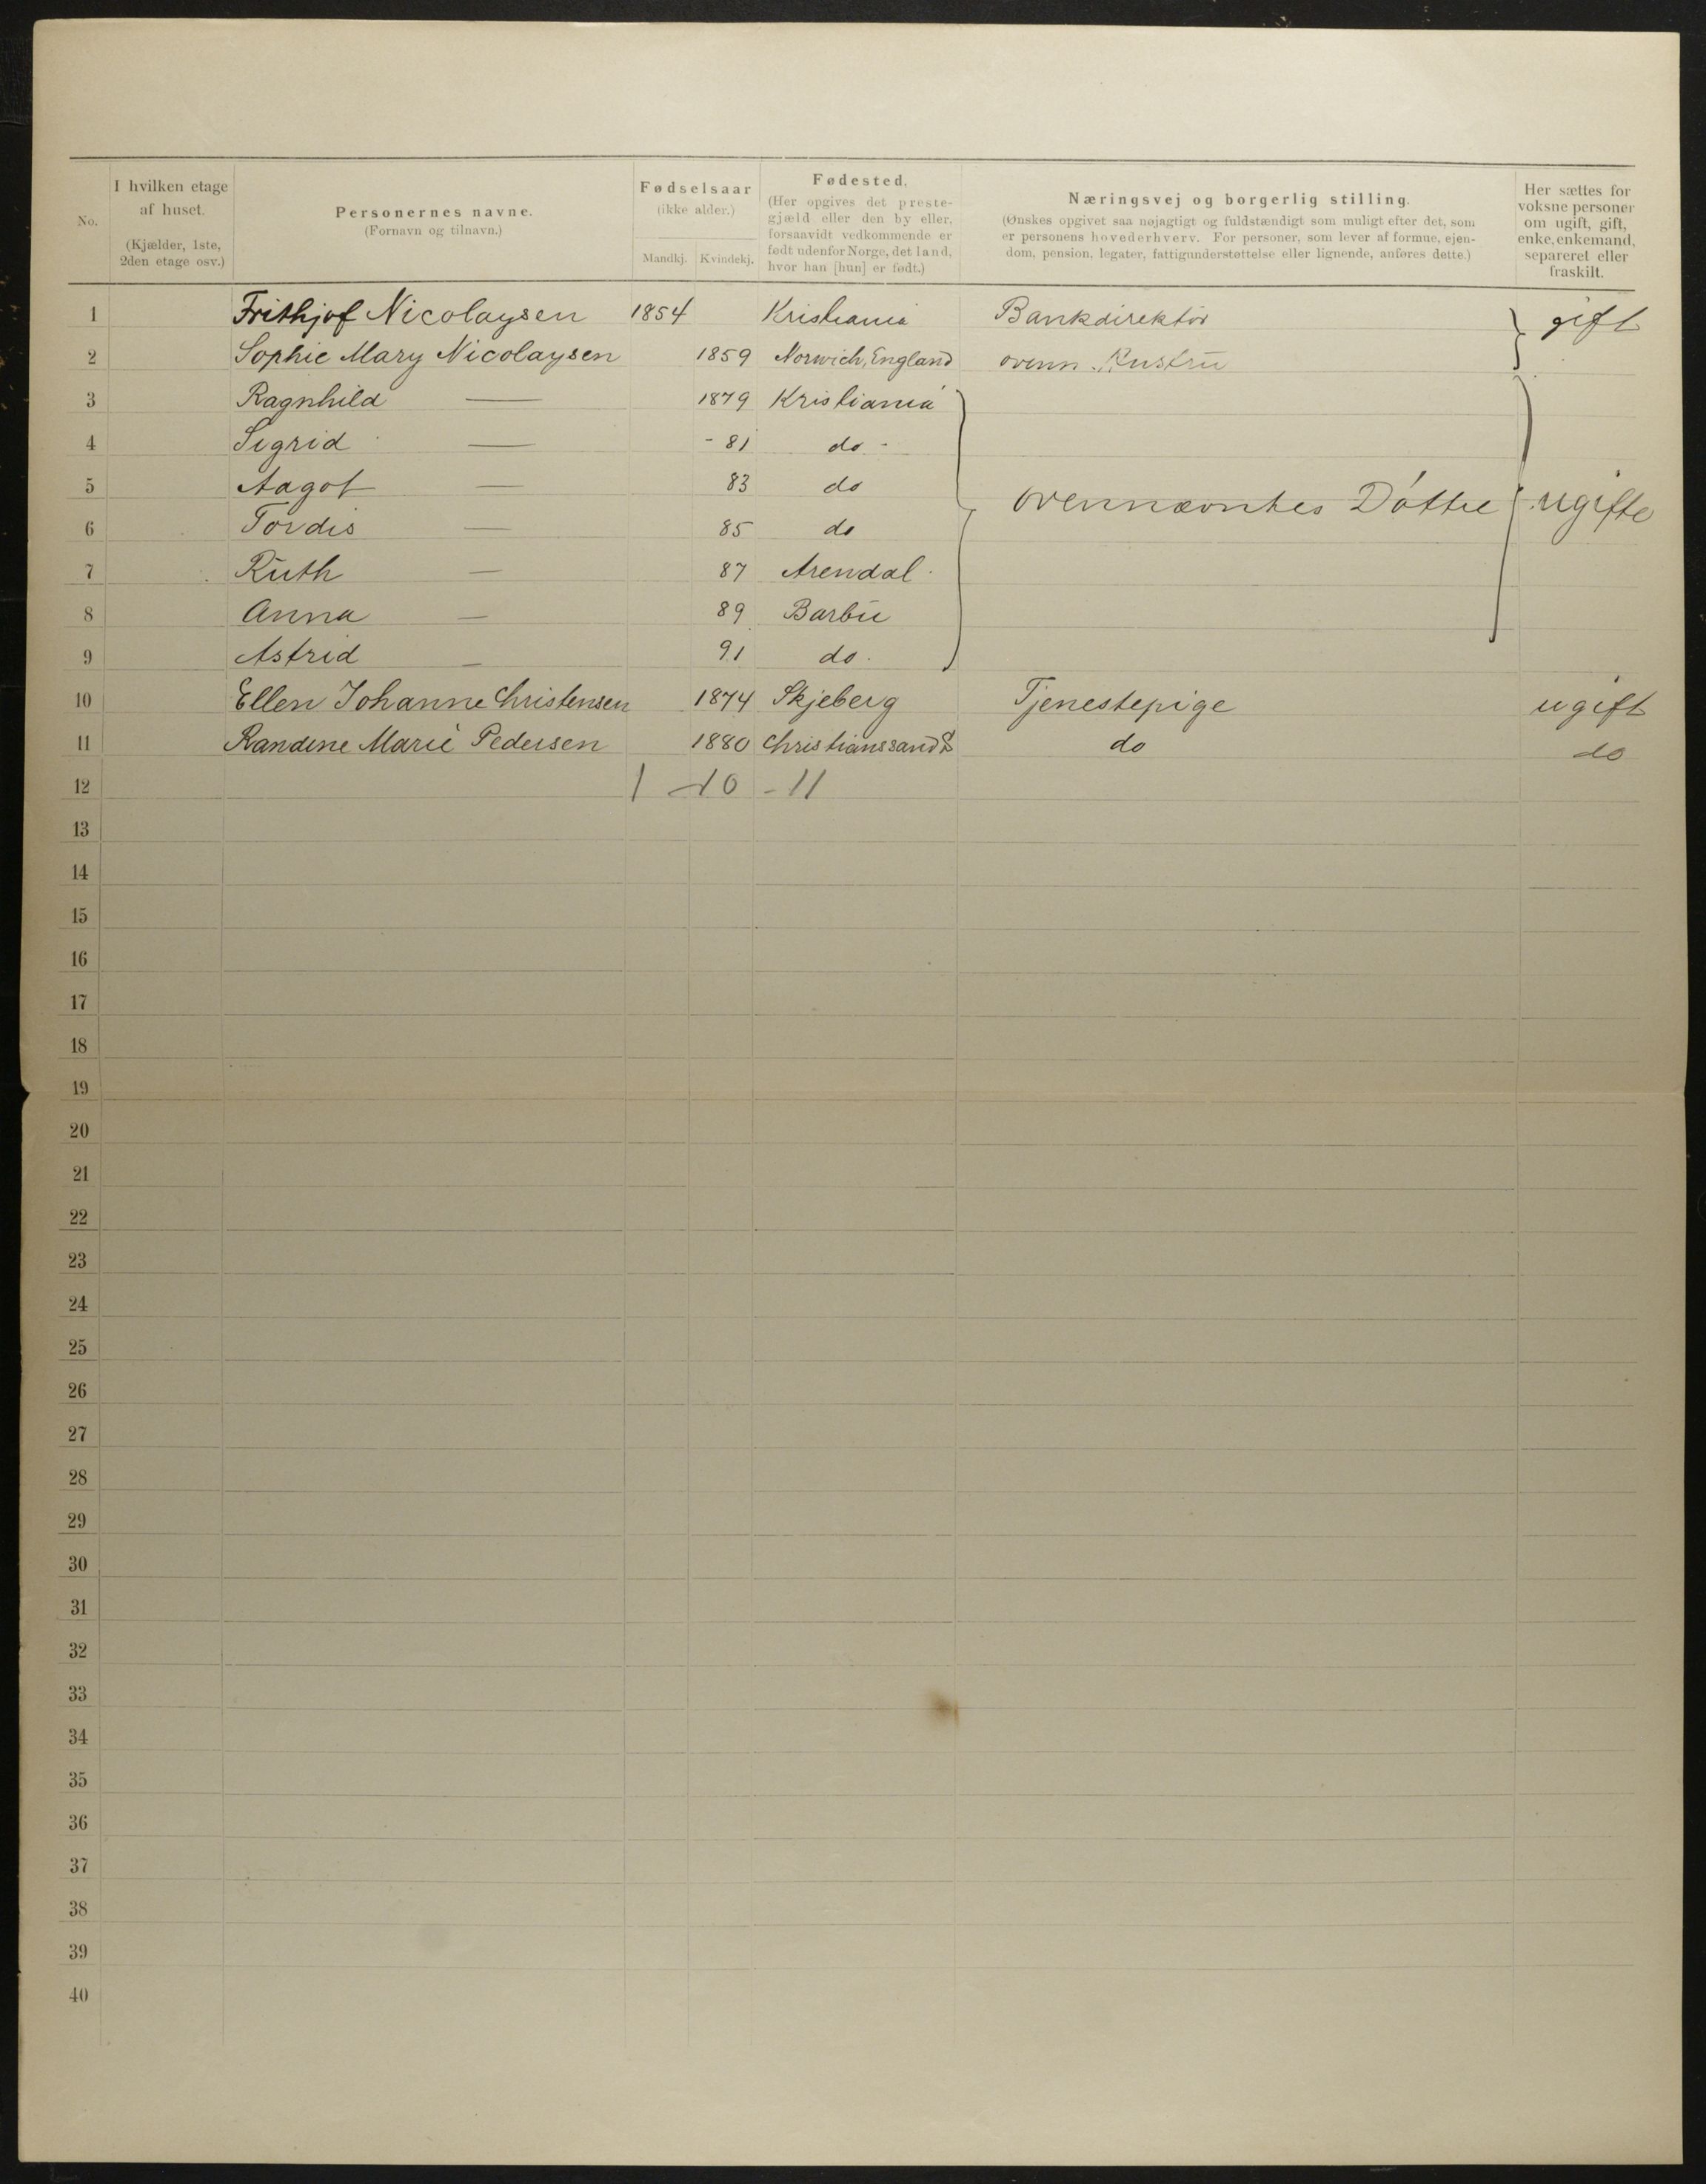 No.
I hvilken etage
af huset.
(Kjælder, 1ste,
2den etage osv.)
Personernes navne.
(Fornavn og tilnavn.)
Fødselsaar
(ikke alder.)
Mandkj. Kvindekj.
Fødested.
(Her opgives det preste-
gjæld eller den by eller,
forsaavidt vedkommende er
født udenfor Norge, det land,
hvor han [hun] er født.)
Næringsvej og borgerlig stilling.
(Ønskes opgivet saa nøjagtigt og fuldstændigt som muligt efter det, som
er personens hovederhverv. For personer, som lever af formue, ejen-
dom, pension, legater, fattigunderstøttelse eller lignende, anføres dette.)
Her sættes for
voksne personer
om ugift, gift,
enke, enkemand,
separeret eller
fraskilt.
1 Frithjof Nicolaysen 1854 Kristiania Bankdirektör gift
2 Sophie Mary Nicolaysen 1859 Norwich, England ovenn. Hustru
3 Ragnhild — 1879 Kristiania
4 Sigrid — - 81 do -
5 Aagot — 83 do ovennævntes Döttre ugifte
6 Tordis — 85 do
7 Ruth — 87 Arendal
8 Anna — 89 Barbu
9 Astrid — 91 do.
10 Ellen Johanne Christensen 1874 Skjeberg Tjenestepige ugift
11 Randine Marie Pedersen 1880 Christianssand S do do
12 1 - 10 - 11
13
14
15
16
17
18
19
20
21
22
23
24
25
26
27
28
29
30
31
32
33
34
35
36
37
38
39
40